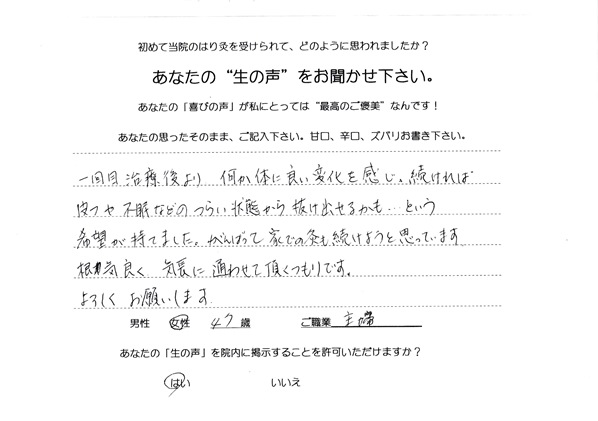 初めて当院のはり灸を受けられて、どのように思われましたか？
あなたの“生の声”をお聞かせ下さい。
あなたの「喜びの声」が私にとっては“最高のご褒美”なんです！
あなたの思ったそのまま、ご記入下さい。甘口、辛口、ズバリお書き下さい。
一回目治療後より 何か体に良い変化を感じ。続ければ
皮フや不眠などのつらい状態から抜け出せるかも…という
希望が持てました。がんばって家での灸も続けようと思っています
根気良く 気長に通わせて頂くつもりです。
よろしくお願いします
男性 女性 47歳 ご職業 主婦
あなたの「生の声」を院内に掲示することを許可いただけますか？
はい いいえ